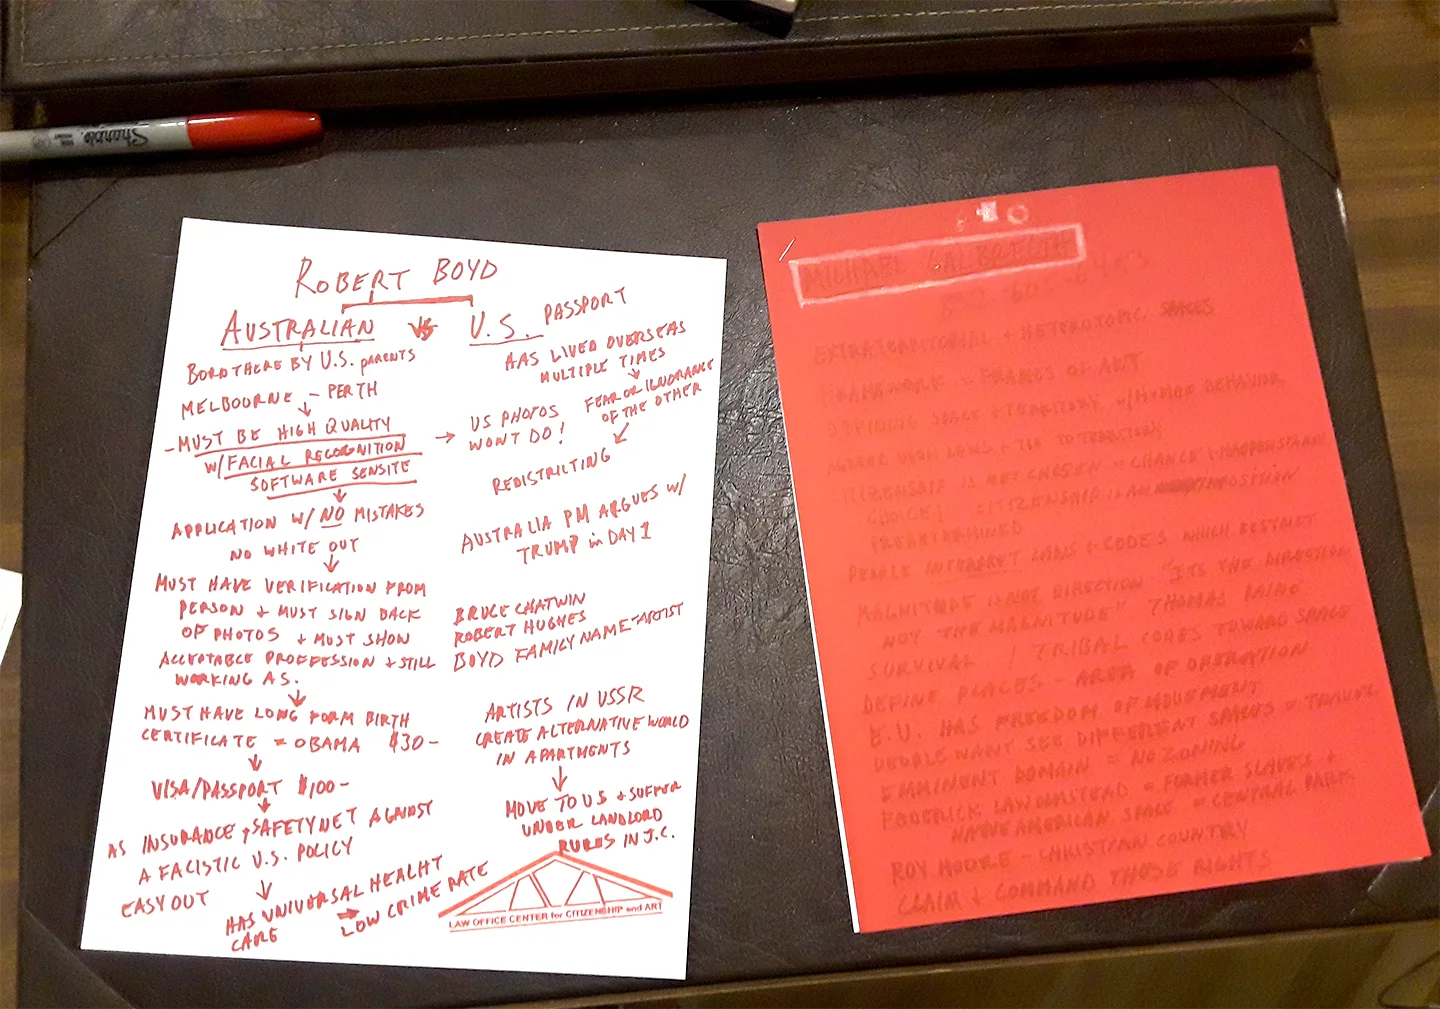 Sharpie
ROBERT BOYD
AUSTRALIAN VS U.S. PASSPORT
BORD THERE BY U.S. PARENTS
MELBOURNE - PERTH
- MUST BE HIGH QUALITY
W/ FACIAL RECOGNITION
SOFTWARE SENSITE
APPLICATION W/ NO MISTAKES
NO WHITE OUT
MUST HAVE VERIFICATION FROM
PERSON + MUST SIGN BACK
OF PHOTOS + MUST SHOW
ACCEPTABLE PROFFESSION + STILL
WORKING AS.
MUST HAVE LONG FORM BIRTH
CERTIFICATE = OBAMA $30-
VISA/PASSPORT $100-
AS INSURANCE + SAFETYNET AGAINST
A FACISTIC U.S. POLICY
EASY OUT
HAS UNIVERSAL HEALHT
CARE
LOW CRIME RATE
HAS LIVED OVERSEAS
MULTIPLE TIMES
FEAR OR IGNORANCE
OF THE OTHER
→ US PHOTOS
WON'T DO!
REDISTRILTING
AUSTRALIA PM ARGUES W/
TRUMP in DAY 1
BRUCE CHATWIN
ROBERT HUGHES
BOYD FAMILY NAME-ARTIST
ARTISTS IN USSR
CREATE ALTERNATIVE WORLD
IN APARTMENTS
MOVE TO US + SUFFER
UNDER LANDLORD
RULES IN J.C.
LAW OFFICE CENTER for CITIZENSHIP and ART
MICHAEL GALBREATH
EXTRATERRITORIAL + HETEROTOPIC SPACES
FRAMEWORK = FRAMES OF ART
DEFINING SPACE + TERRITORY W/ HUMAN BEHAVIOR
AGREED UPON LAWS + TIE TO TERRITORY
CITIZENSHIP IS NOT CHOSEN = CHANCE + HAPPENSTANCE
CHOICE? CITIZENSHIP IS AN IMPOSITION
PREDETERMINED
PEOPLE INTERPRET LAWS + CODES WHICH RESTRICT
MAGNITUDE is NOT DIRECTION - "ITS THE DIRECTION
NOT THE MAGNITUDE" THOMAS PAINE
SURVIVAL / TRIBAL CODES TOWARD SPACE
DEFINE PLACES - AREA OF OPERATION
E.U. HAS FREEDOM OF MOVEMENT
PEOPLE WANT SEE DIFFERENT SPACES = TRAVEL
EMMINENT DOMAIN = NO ZONING
FEDERICK LAW OMSTEAD = FORMER SLAVES +
NATIVE AMERICAN SPACE = CENTRAL PARK
ROY MOORE - CHRISTIAN COUNTRY
CLAIM + COMMAND THOSE RIGHTS